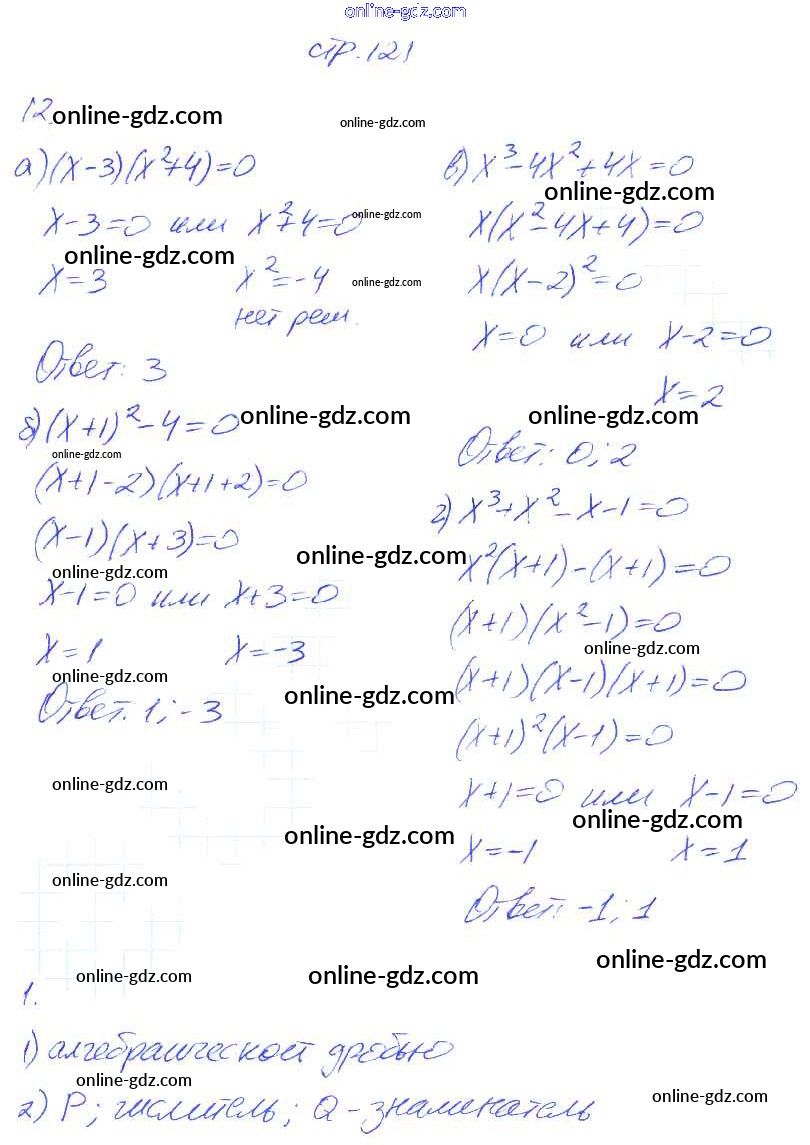 online-gdz.com
стр. 121
12.
online-gdz.com
online-gdz.com
а) (x-3)(x²+4)=0
x-3=0 или x²+4=0
online-gdz.com
online-gdz.com
x=3 x²=-4
online-gdz.com
нет реш.
Ответ: 3
б) (x+1)²-4=0
online-gdz.com
online-gdz.com
(x+1-2)(x+1+2)=0
(x-1)(x+3)=0
online-gdz.com
online-gdz.com
x-1=0 или x+3=0
x=1 x=-3
online-gdz.com
online-gdz.com
Ответ: 1; -3
online-gdz.com
online-gdz.com
online-gdz.com
в) x³-4x²+4x=0
online-gdz.com
x(x²-4x+4)=0
x(x-2)²=0
x=0 или x-2=0
x=2
online-gdz.com
Ответ: 0; 2
г) x³+x²-x-1=0
x²(x+1)-(x+1)=0
(x+1)(x²-1)=0
online-gdz.com
(x+1)(x-1)(x+1)=0
(x+1)²(x-1)=0
x+1=0 или x-1=0
online-gdz.com
x=-1 x=1
Ответ: -1; 1
online-gdz.com
online-gdz.com
online-gdz.com
1.
1) алгебраической дробью
online-gdz.com
2) P; числитель; Q - знаменатель
online-gdz.com